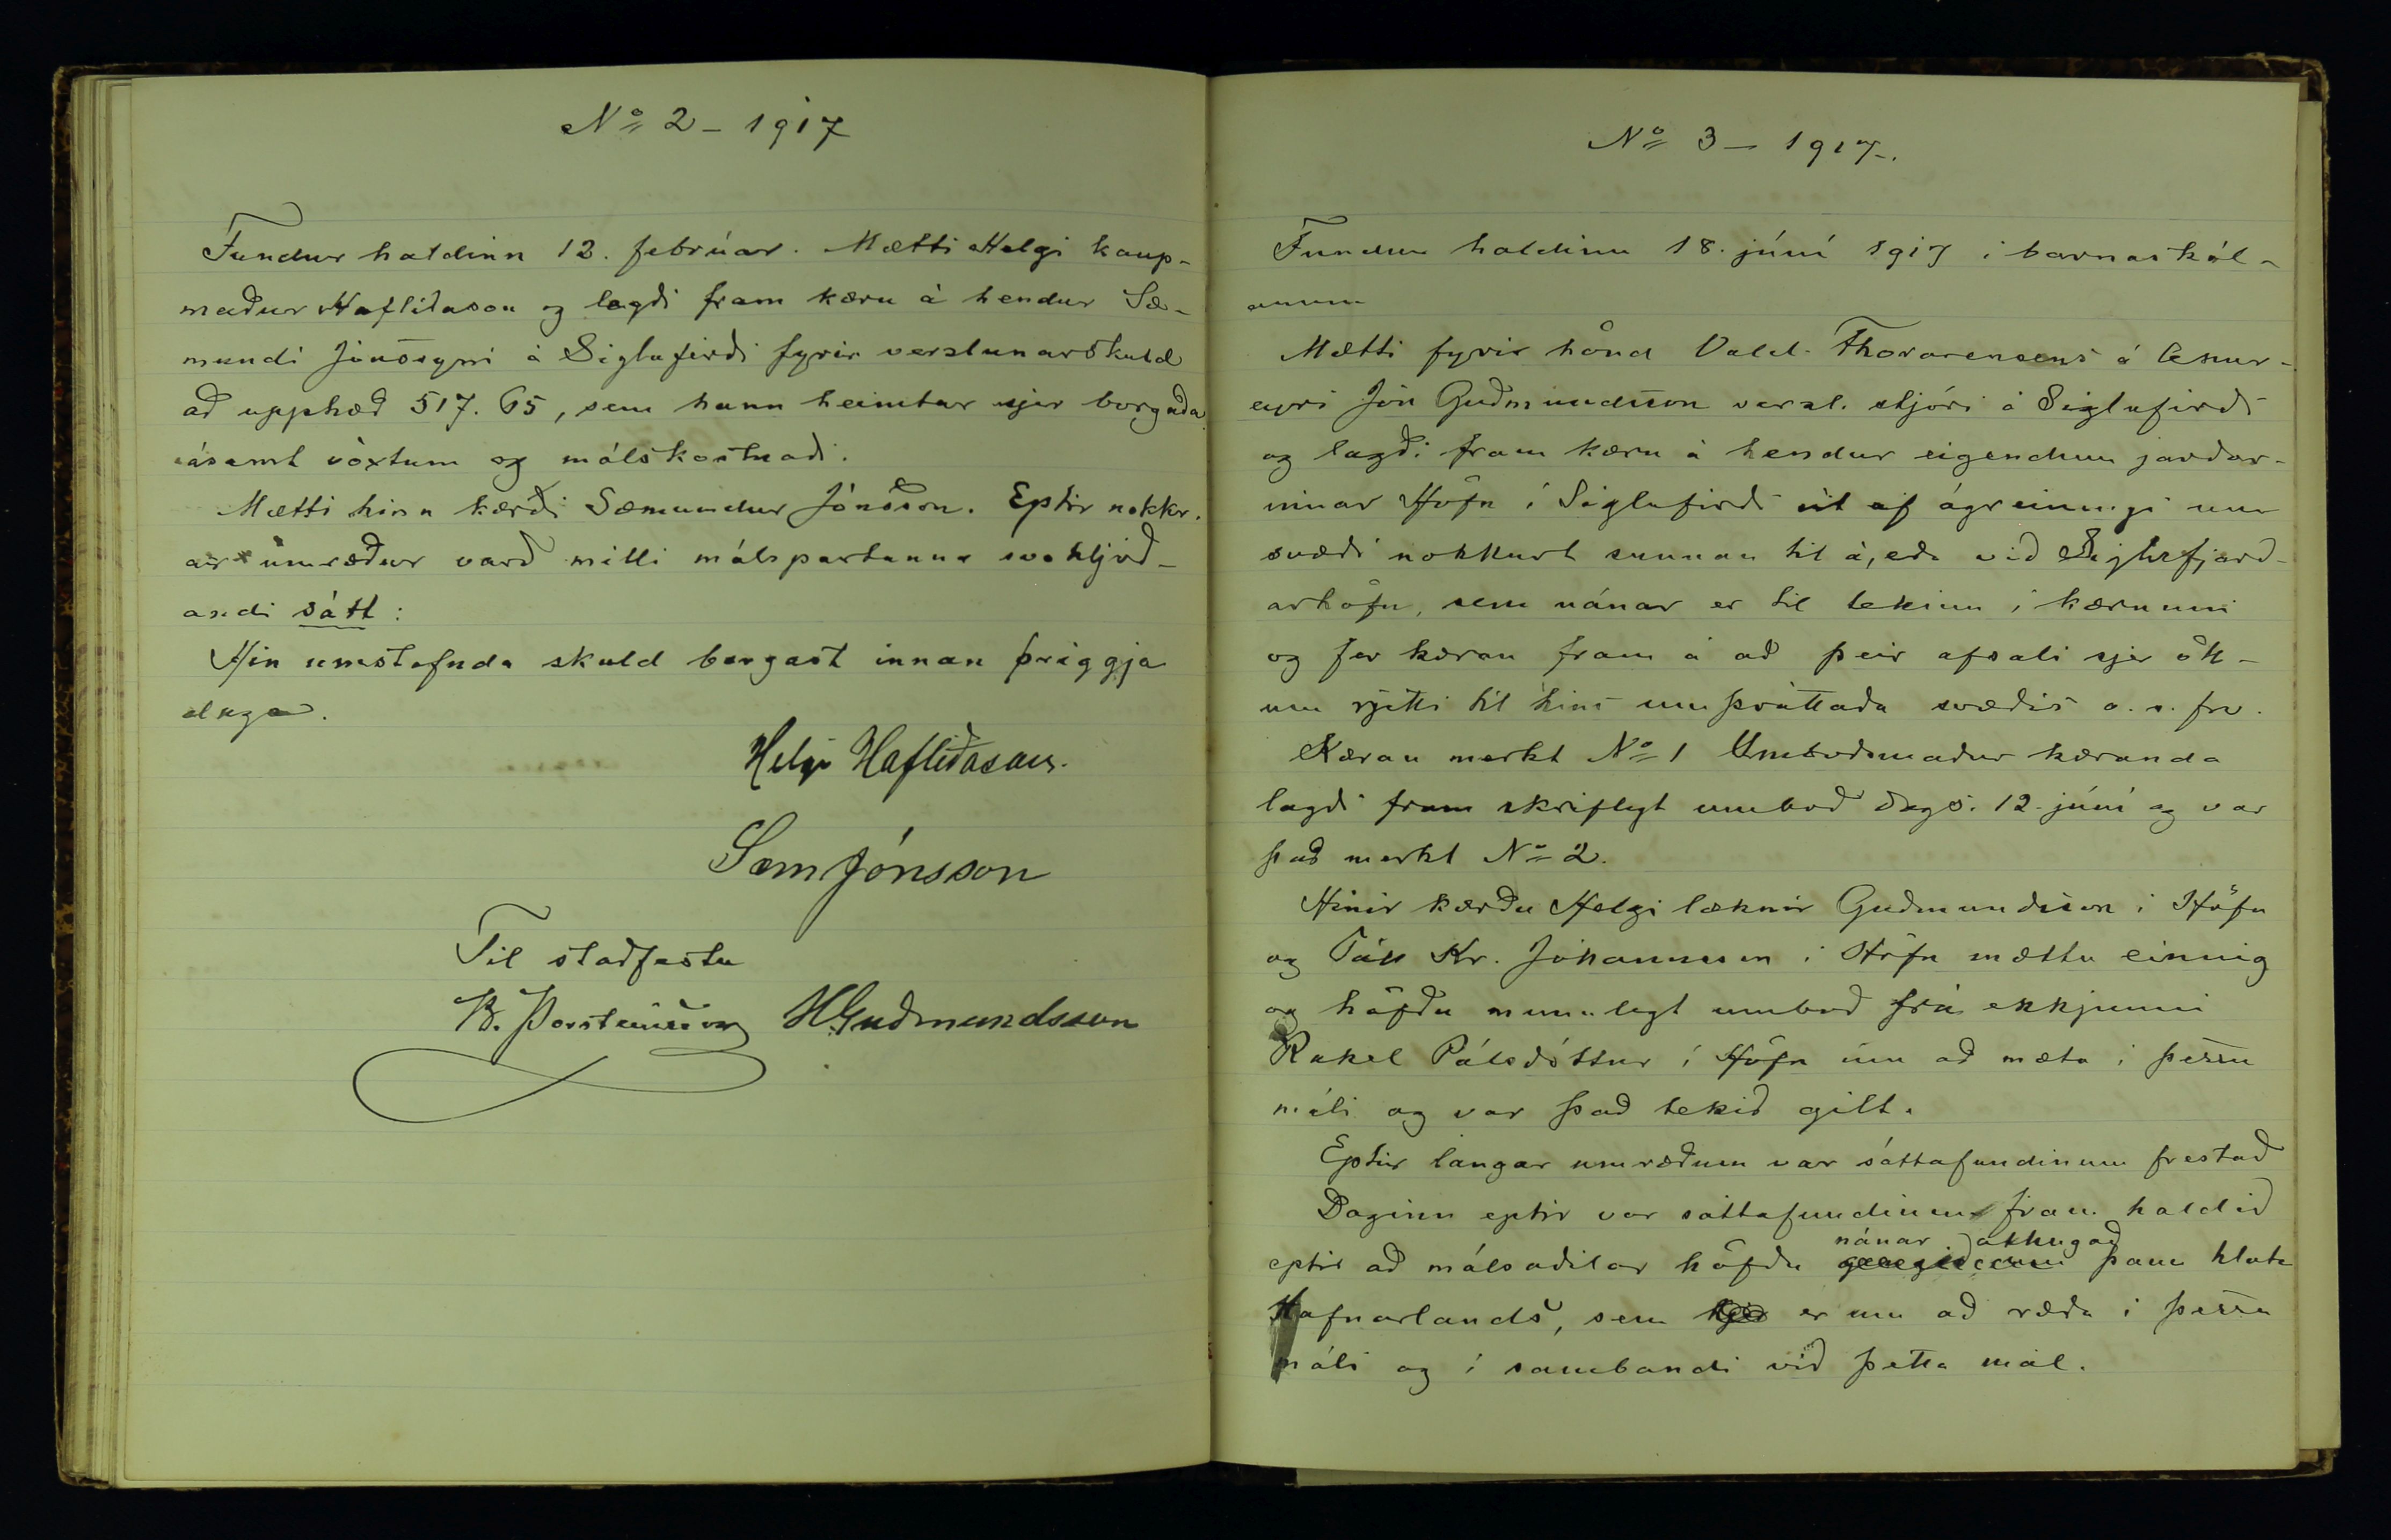 No 2 - 1917
Fundur haldinn 12. febrúar. Mætti Helgi kaup-
maður Hafliðason og lagði fram kæru á hendur Sæ-
mundi Jónssyni á Siglufirði fyrir verslunarskuld
að upphæð 517.65, sem hann heimtar sjer borgaða
ásamt vöxtum og málskostnaði.
Mætti hinn kærði Sæmundur Jónsson. Eptir nokkr-
ar umræður varð milli málspartanna svohljóð-
andi sátt:
Hin umstefnda skuld borgast innan þriggja
daga.
Helgi Hafliðason.
Sæm Jónsson
Til staðfestu
B. Þorsteinsson HGuðmundsson
No 3 - 1917.
Fundur haldinn 18. júní 1917 í barnaskól-
anum
Mætti fyrir hönd Vald. Thorarensens á Akur-
eyri Jón Guðmundsson verzl. stjóri á Siglufirði
og lagði fram kæru á hendur eigendum jarðar-
innar Höfn í Siglufirði út af ágreiningi um
svæði nokkurt sunnan til á, eða við Siglufjarð-
arhöfn, sem nánar er til tekinn í kærunni
og fer kæran fram á að þeir afsali sjer öll-
um rjetti til hins umþráttaða svæðis o. s. frv.
Kæran merkt No 1 Umboðsmaður kæranda
lagði fram skriflegt umboð dags. 12. júní og var
það merkt No 2.
Hinir kærðu Helgi læknir Guðmundsson í Höfn
og Páll Kr. Jóhannsson í Höfn mættu einnig
og höfðu munnlegt umboð frá ekkjunni
Rakel Pálsdóttur í Höfn um að mæta í þessu
máli og var það tekið gilt.
Eptir langar umræðum var sáttafundinum frestað
Daginn eptir var sáttafundinum fram haldið
nánar athugað
eptir að málsaðilar höfðu þann hluta
Hafnarlands, sem er um að ræða í þessu
máli og í sambandi við þetta mál.